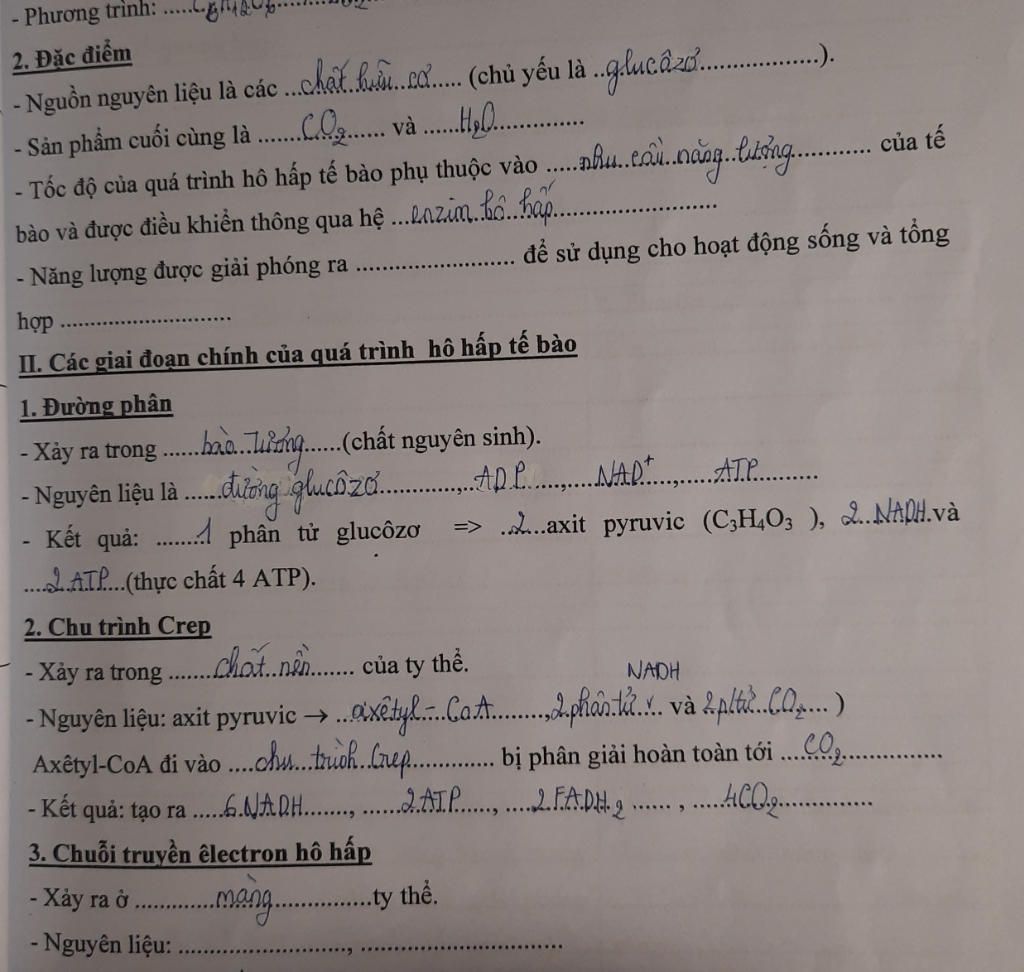 - Phương trình: .....C6H12O6....
2. Đặc điểm
- Nguồn nguyên liệu là các ...chất hữu cơ..... (chủ yếu là ..glucôzơ....................).
- Sản phẩm cuối cùng là .......CO2....... và ......H2O...............
- Tốc độ của quá trình hô hấp tế bào phụ thuộc vào .....nhu cầu năng lượng............ của tế
bào và được điều khiển thông qua hệ ...enzim hô hấp...........................
- Năng lượng được giải phóng ra ......................... để sử dụng cho hoạt động sống và tổng
hợp ............................
II. Các giai đoạn chính của quá trình hô hấp tế bào
1. Đường phân
- Xảy ra trong ......bào tương......(chất nguyên sinh).
- Nguyên liệu là ......đường glucôzơ............., ..ADP....., ....NAD+...., .....ATP..........
- Kết quả: .......1 phân tử glucôzơ => ..2...axit pyruvic (C3H4O3 ), 2..NADH.và
....2 ATP...(thực chất 4 ATP).
2. Chu trình Crep
- Xảy ra trong .......chất nền....... của ty thể.
NADH
- Nguyên liệu: axit pyruvic → ..axêtyl - CoA........,2 phân tử v.. và 2 ptử CO2.... )
Axêtyl-CoA đi vào ....chu trình Crep............. bị phân giải hoàn toàn tới ....CO2................
- Kết quả: tạo ra .....6 NADH......., ......2 ATP....., ....2 FADH2 ...... , .....4CO2...............
3. Chuỗi truyền êlectron hô hấp
- Xảy ra ở .............màng................ty thể.
- Nguyên liệu: ..........................., ................................